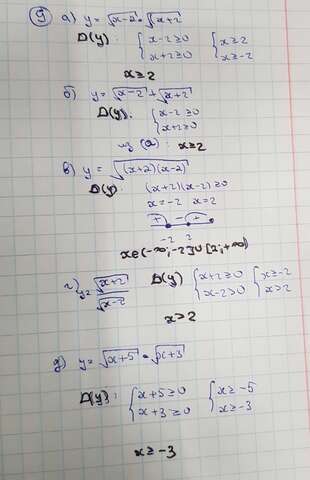 9) а) y = √x-2 · √x+2
D(y): { x-2≥0 { x≥2
x+2≥0 x≥-2
x≥2
б) y = √x-2 + √x+2
D(y): { x-2≥0
x+2≥0
из (а): x≥2
в) y = √(x+2)(x-2)
D(y): (x+2)(x-2)≥0
x=-2 x=2
+ - +
-2 2
x∈(-∞;-2]∪[2;+∞)
г) y= √x+2 / √x-2 D(y) { x+2≥0 { x≥-2
x-2>0 x>2
x>2
д) y = √x+5 · √x+3
D(y): { x+5≥0 { x≥-5
x+3≥0 x≥-3
x≥-3